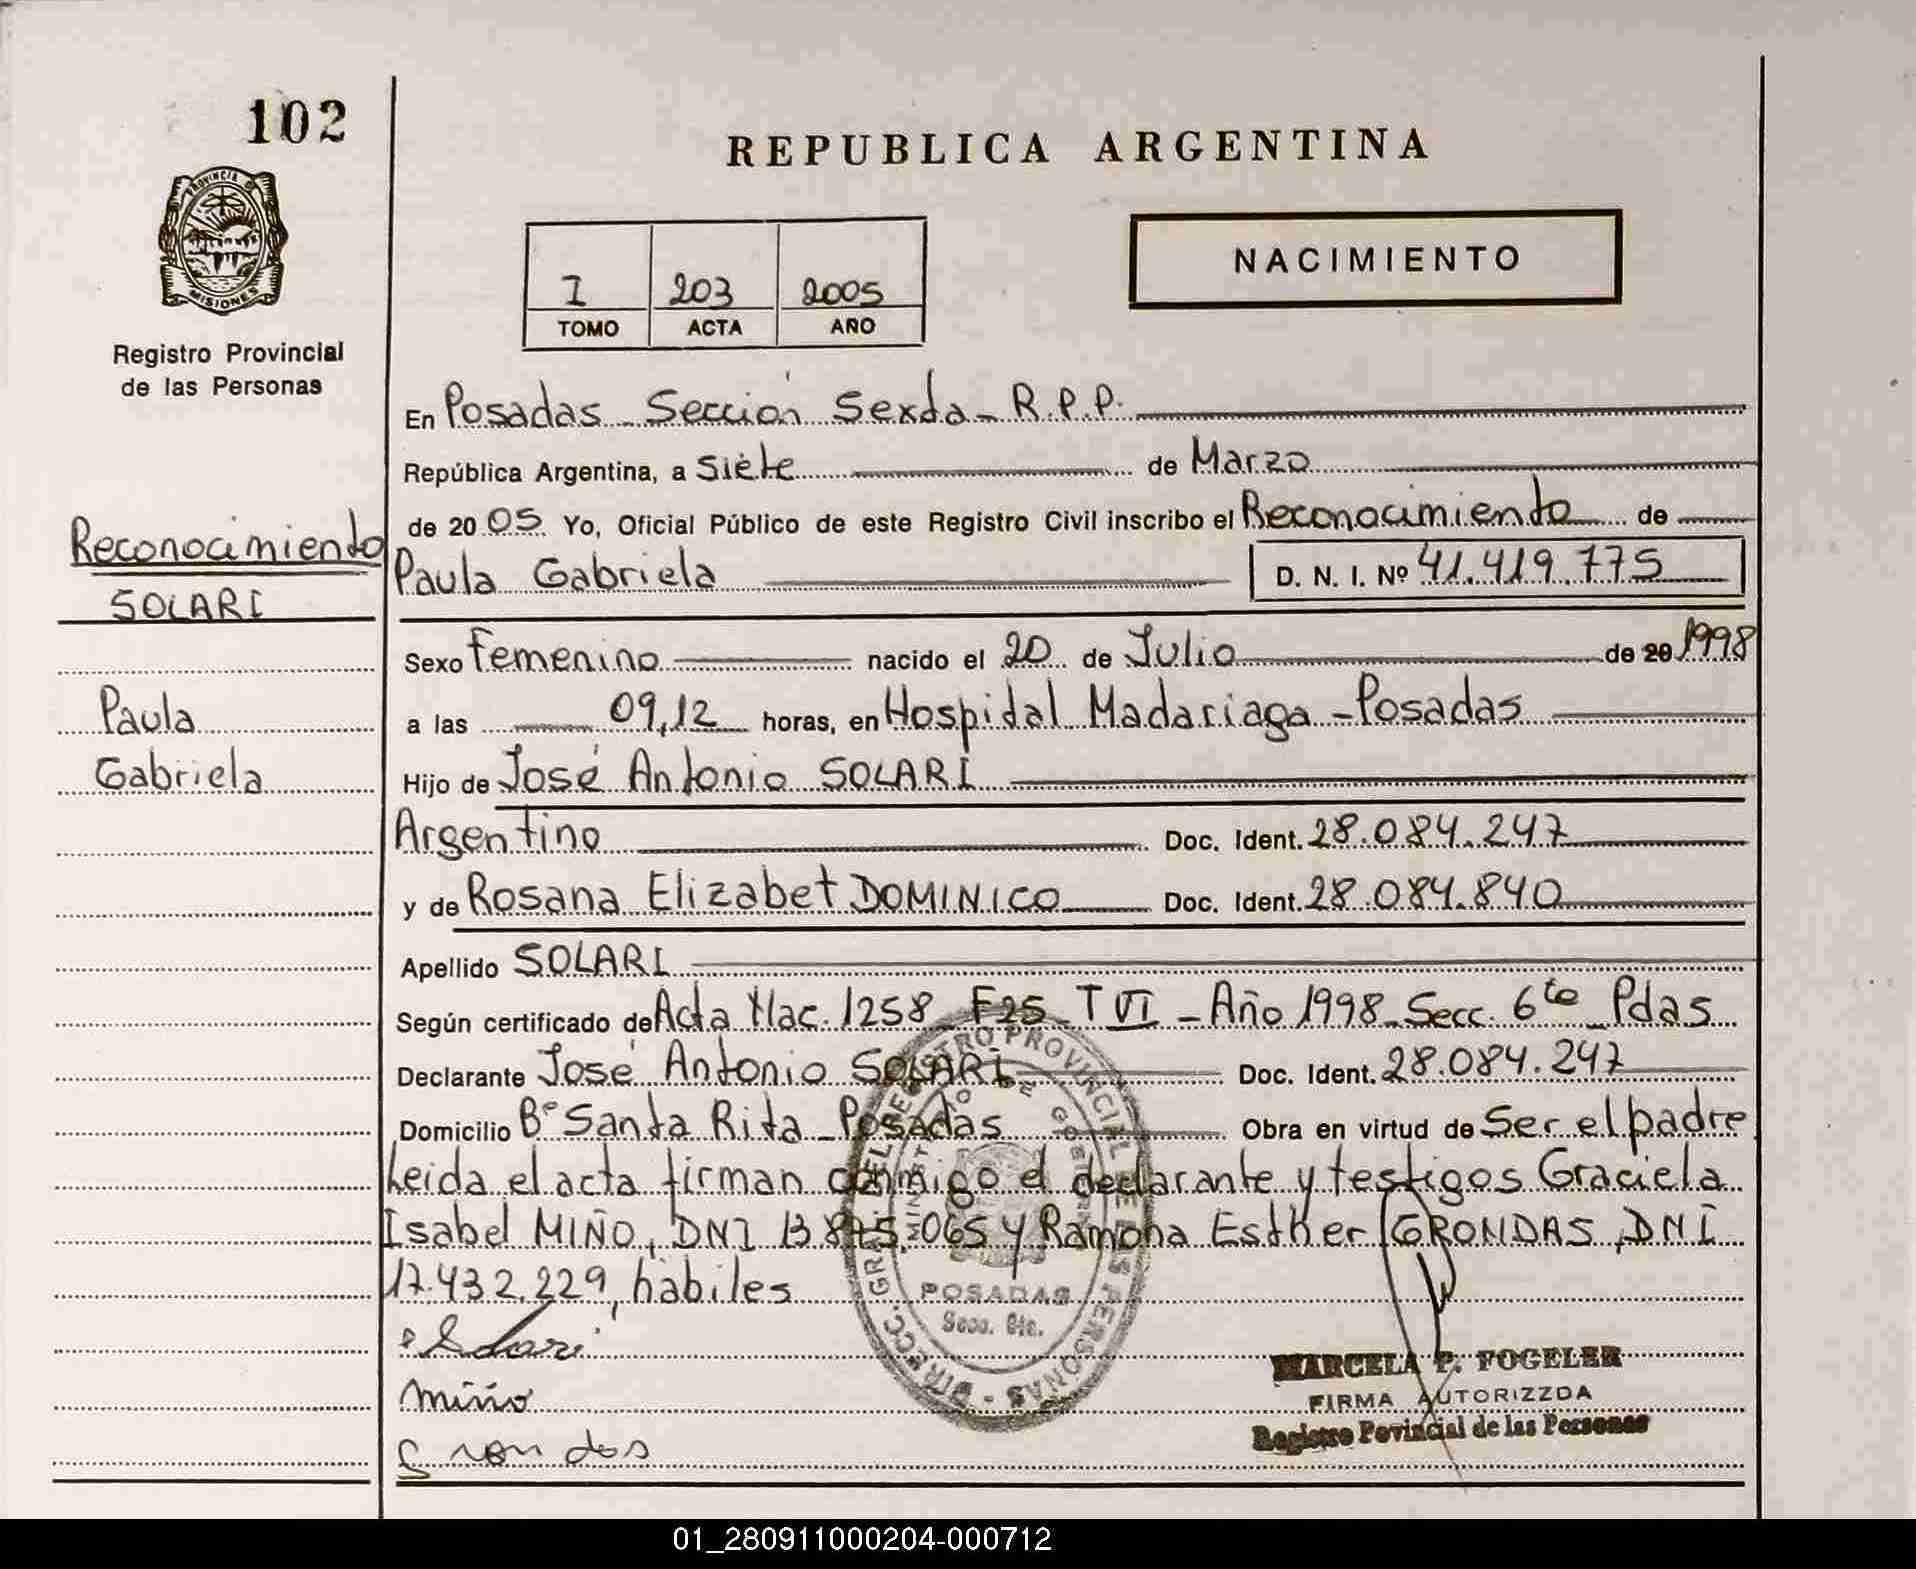 102
REPUBLICA ARGENTINA
PROVINCIA DE
MISIONES
NACIMIENTO
I 203 2005
TOMO ACTA AÑO
Registro Provincial
de las Personas
En Posadas Sección Sexta - R.P.P.
República Argentina, a Siete de Marzo
de 20 05 Yo, Oficial Público de este Registro Civil inscribo el Reconocimiento de
Paula Gabriela D. N. I. Nº 41.419.775
Reconocimiento
SOLARI
Paula
Gabriela
Sexo Femenino nacido el 20 de Julio de 20 1998
a las 09,12 horas, en Hospital Madariaga - Posadas
Hijo de José Antonio SOLARI
Argentino Doc. Ident. 28.084.247
y de Rosana Elizabet DOMINICO Doc. Ident. 28.084.840
Apellido SOLARI
Según certificado de Acta Nac. 1258 F25 T VI - Año 1998 Secc. 6ta Pdas
Declarante José Antonio SOLARI Doc. Ident. 28.084.247
Domicilio Bº Santa Rita - Posadas Obra en virtud de Ser el padre
Leida el acta firman conmigo el declarante y testigos Graciela
Isabel MIÑO, DNI 13.875.065 y Ramona Esther GRONDAS, DNI
17.432.229, hábiles
Solari
Miño
Grondas
REGISTRO PROVINCIAL DE LAS PERSONAS
POSADAS
Secc. 6ta.
MARCELA P. FOGELER
FIRMA AUTORIZZDA
Registro Povincial de las Personas
01_280911000204-000712